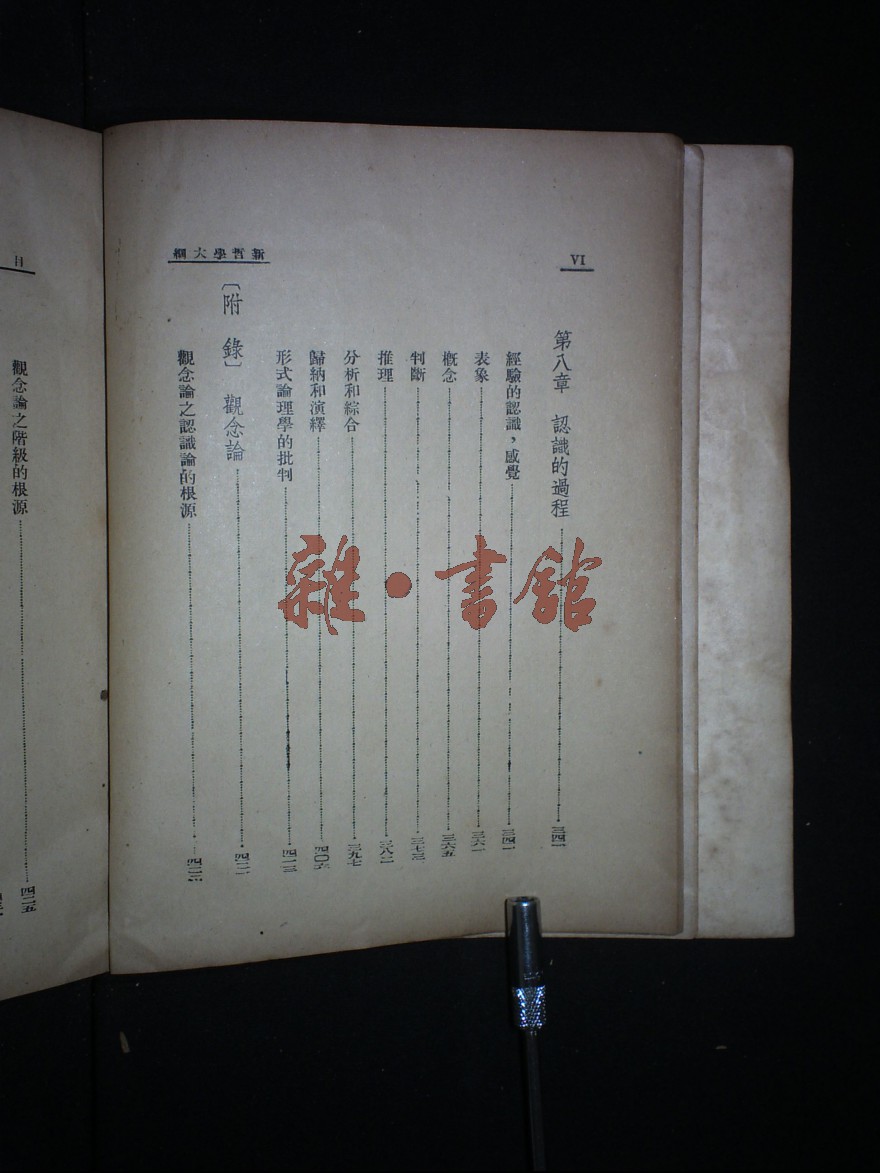 VI
新哲學大綱
第八章 認識的過程……三四一
經驗的認識,感覺……三四一
表象……三六一
概念……三六五
判斷……三七三
推理……三八二
分析和綜合……三九七
歸納和演繹……四〇五
形式論理學的批判……四一三
〔附錄〕 觀念論……四二二
觀念論之認識論的根源……四二三
目
觀念論之階級的根源……四二五
雜·書館